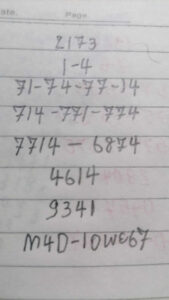 Page.
2173
1-4
71-74-77-14
714-771-774
7714 - 6874
4614
9341